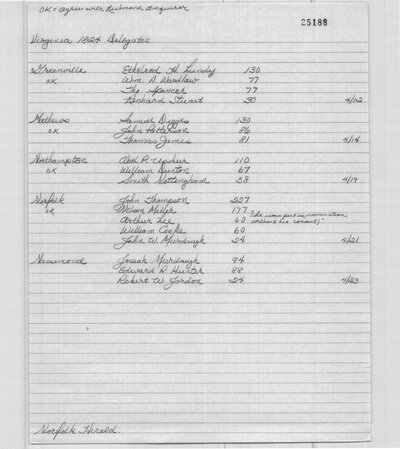 OK = agree with Richmond Enquirer
25188
Virginia 1824 Delegates
Greenville Ethelred H. Lundy 130
OK Wm. A. Wardlaw 77
Tho Spencer 77
Richard Stuart 30 4/12
Mathews Samuel Diggs 130
OK John Patterson 86
Thomas James 81 4/14
Northampton Abel P. Upshur 110
OK William Dunton 67
Smith Nottingham 58 4/19
Norfolk John Thompson 227
OK Wilson Miller 177
Arthur Lee 60 (He was put in nomination without his consent)
William Cocke 60
John W. Murdaugh 24 4/21
Nansemond Josiah Murdaugh 94
Edward R. Hunter 88
Robert W. Jordon 24 4/23
Norfolk Herald